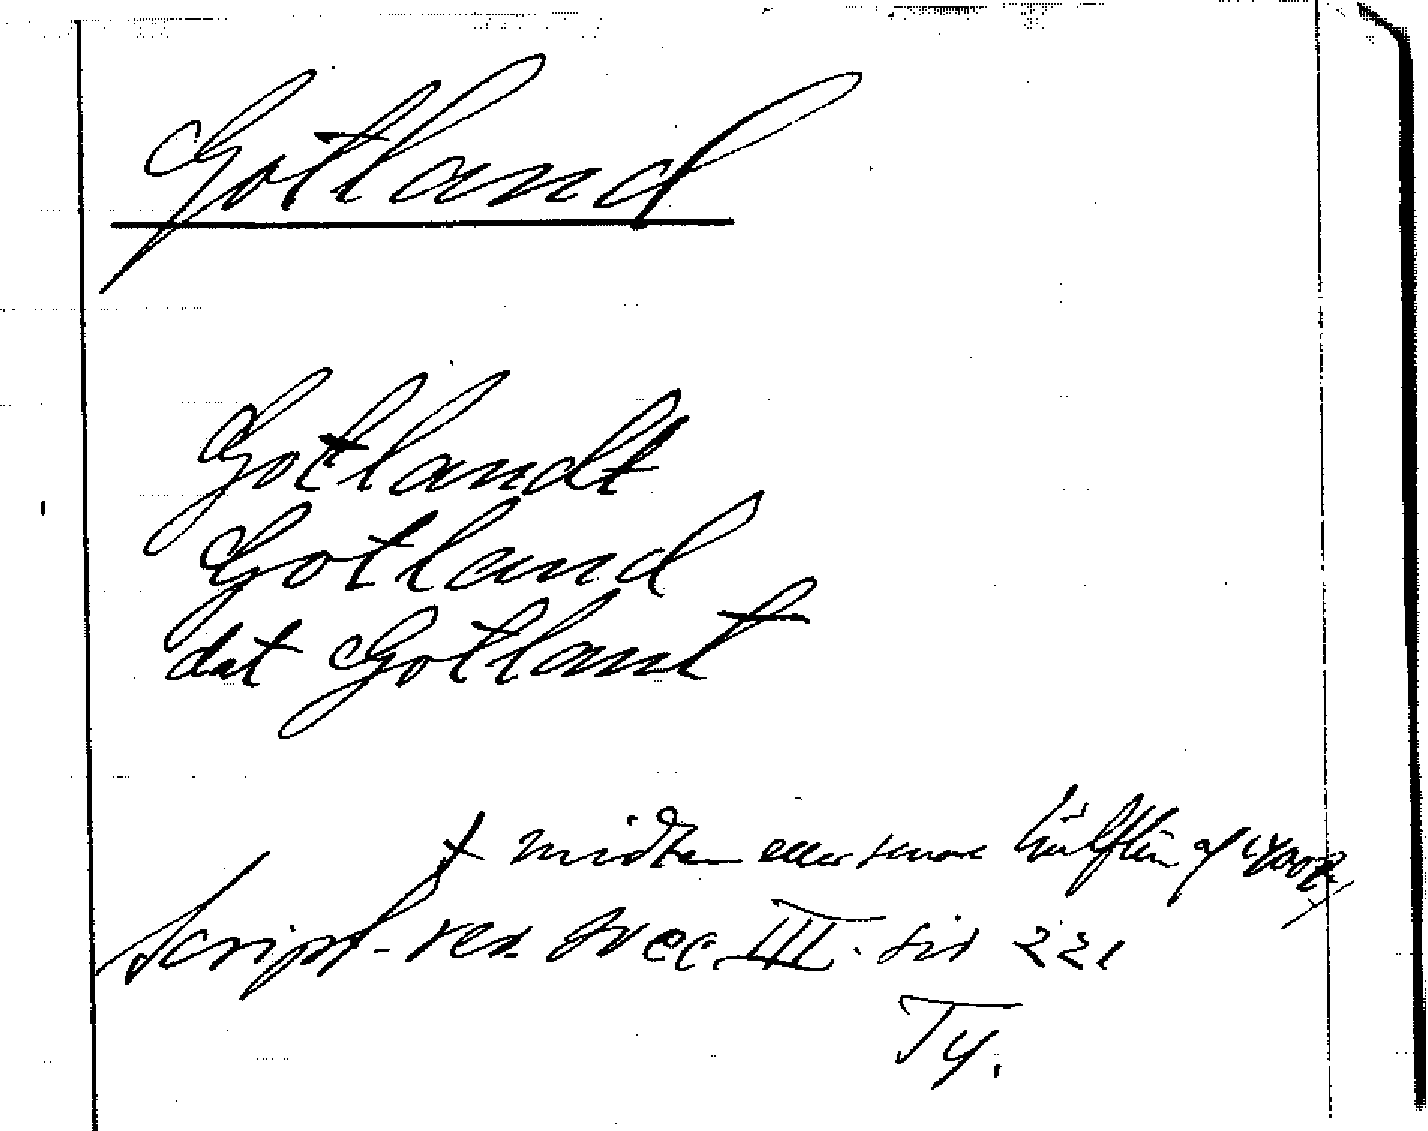 Gotland
Gotlandt
Gotland
dat Gotlant
† midten eller senare hälften af 1400t.
Script. rer. svec. III. sid 221
Ty.